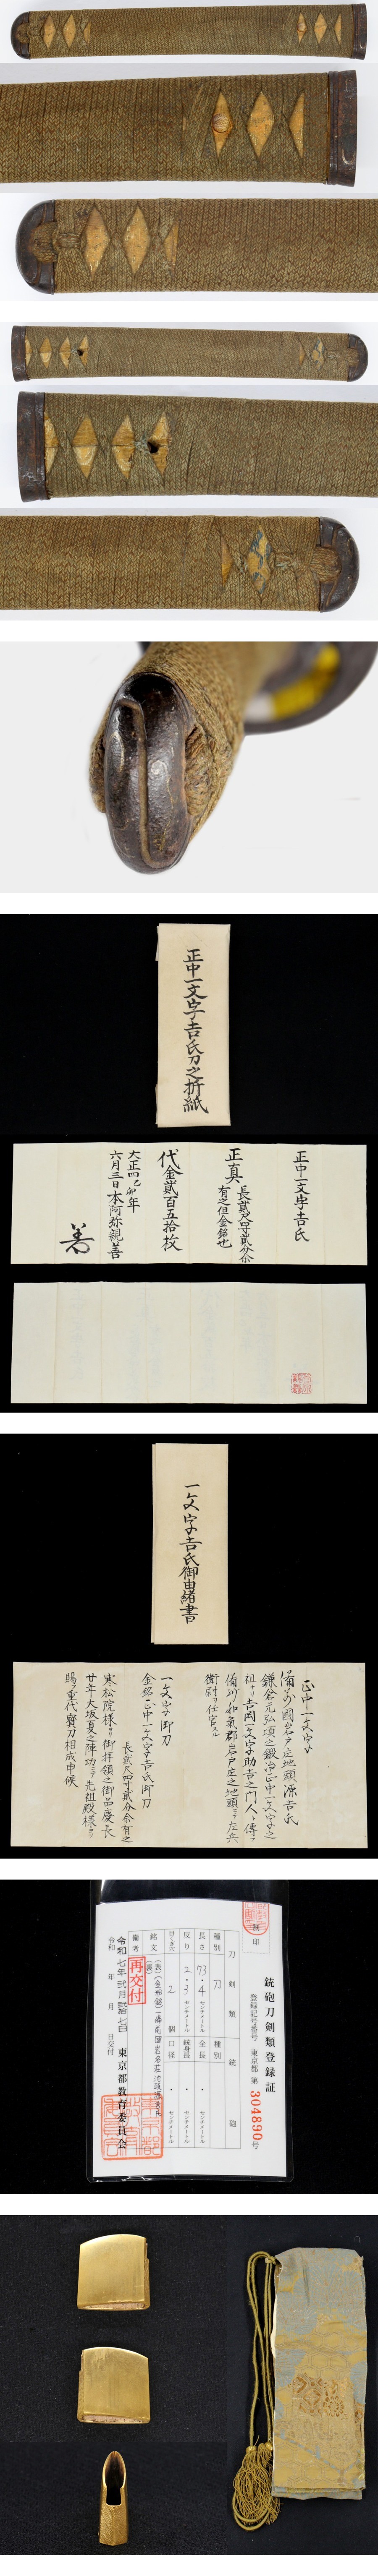 正中一文字吉氏刀之折紙
正中一文字吉氏
正真 長貳尺四寸貳分余
有之但金銘也
代金貳百五拾枚
大正四乙卯年
六月三日 本阿弥親善
一文字吉氏御由緒書
正中一文字
備前國岩戸庄地頭源吉氏
鎌倉元弘頃之鍛冶正中一文字之
祖ナリ吉岡一文字助吉之門人ト傳フ
備州和氣郡岩戸庄之地頭ニテ左兵
衛尉ヲ任官ス
一文字御刀
金銘正中一文字吉氏御刀
長貳尺四寸貳分余有之
寒松院様ヨリ御拝領之御品慶長
廿年大坂夏之陣功ニテ先祖殿様ヨリ
賜フ重代寶刀相成申候
銃砲刀剣類登録証
登録記号番号 東京都 第 304890 号
刀剣類
銃砲
種別 刀
種別
長さ 73・4 センチメートル
全長 ・ センチメートル
反り 2・3 センチメートル
銃身長 ・ センチメートル
目くぎ穴 2 個
口径 ・ センチメートル
銘文
(表)
(裏)
備考
再交付
令和七年貳月
令和 年 月 日交付
東京都教育委員会